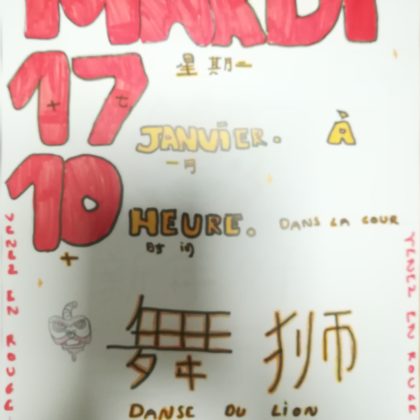 MARDI
星期二
17
十 七
JANVIER. À
一月
10
HEURE. DANS LA COUR
时间
十
VENEZ EN ROUGE
VENEZ EN ROUGE
舞狮
DANSE DU LION